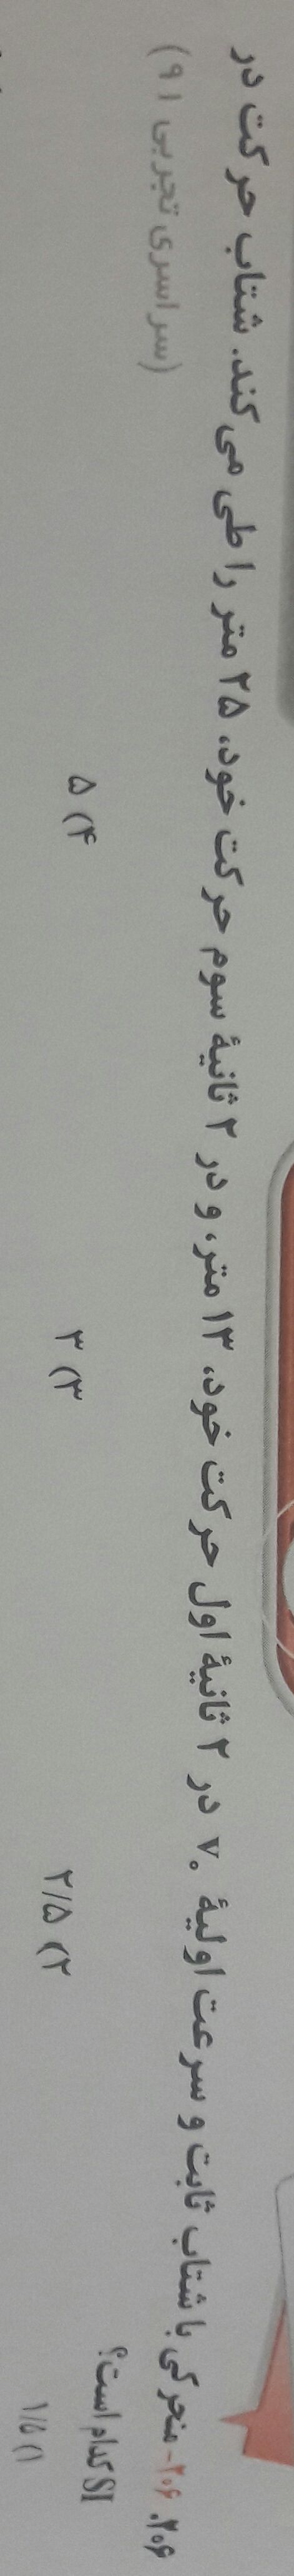 ۲۰۶. ۲۰۶- متحرکی با شتاب ثابت و سرعت اولیهٔ v₀ در ۲ ثانیهٔ اول حرکت خود، ۱۳ متر، و در ۲ ثانیهٔ سوم حرکت خود، ۲۵ متر را طی می‌کند. شتاب حرکت در
SI کدام است؟ (سراسری تجربی ۹۱)
۱) ۱/۵ ۲) ۲/۵ ۳) ۳ ۴) ۵